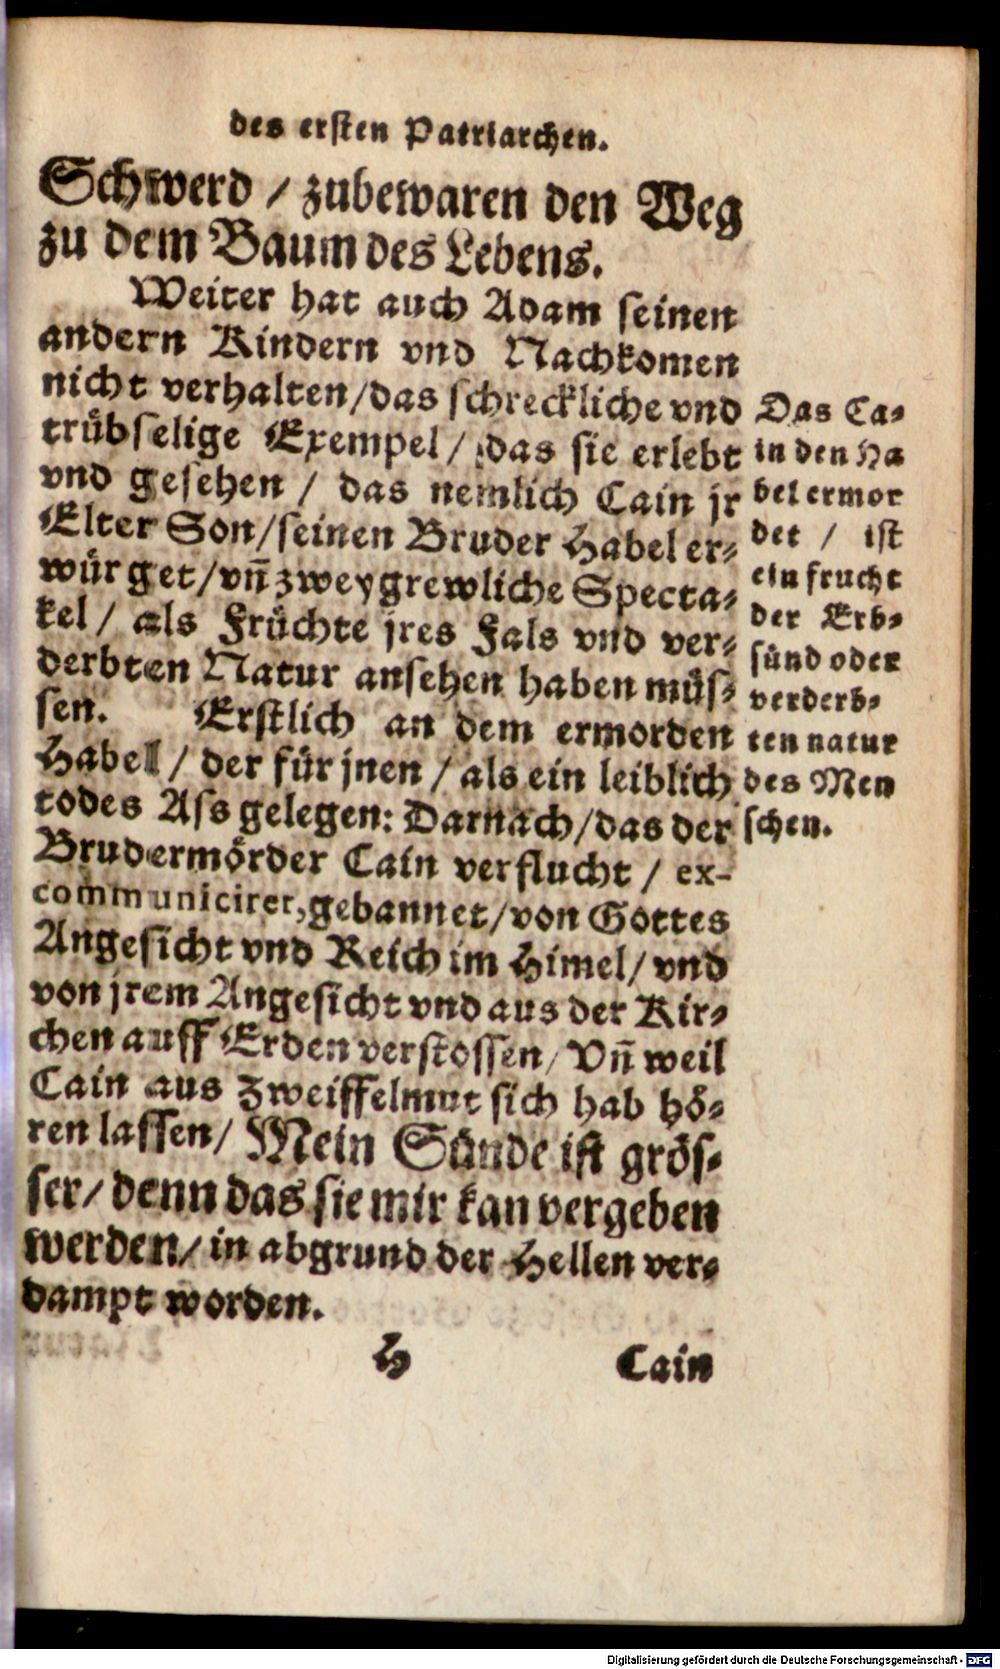 des ersten Patriarchen.
Schwerd / zubewaren den Weg
zu dem Baum des Lebens.
Weiter hat auch Adam seinen
andern Kindern vnd Nachkomen
nicht verhalten / das schreckliche vnd
trübselige Exempel / das sie erlebt
vnd gesehen / das nemlich Cain jr
Elter Son / seinen Bruder Habel er-
würget / vñ zwey grewliche Specta-
kel / als Früchte jres Fals vnd ver-
derbten Natur ansehen haben müs-
sen. Erstlich an dem ermorden
Habel / der für jnen / als ein leiblich
todes Ass gelegen: Darnach / das der
Brudermörder Cain verflucht / ex-
communicirer, gebannet / von Gottes
Angesicht vnd Reich im Himel / vnd
von jrem Angesicht vnd aus der Kir-
chen auff Erden verstossen / Vñ weil
Cain aus zweiffelmut sich hab hö-
ren lassen / Mein Sünde ist grös-
ser / denn das sie mir kan vergeben
werden / in abgrund der Hellen ver-
dampt worden.
Das Ca-
in den Ha
bel ermor
det / ist
ein frucht
der Erb-
sünd oder
verderb-
ten natur
des Men
schen.
H
Cain
Digitalisierung gefördert durch die Deutsche Forschungsgemeinschaft - DFG